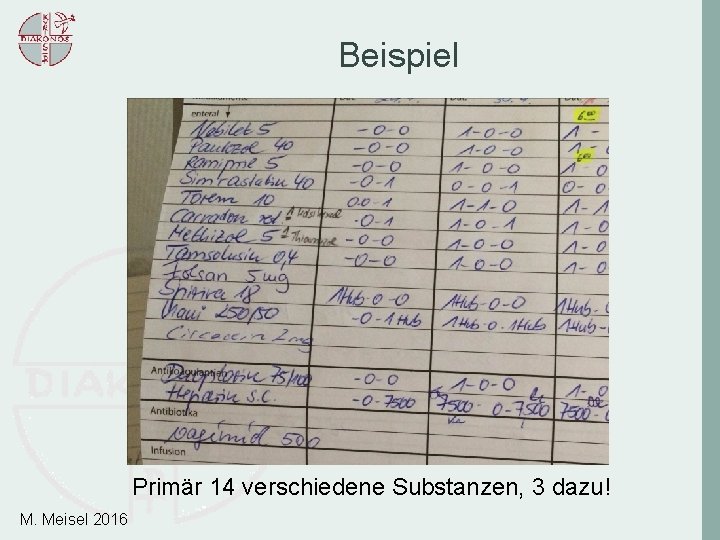 KYRIOS
DIAKONOS
Beispiel
enteral
600
Nebilet 5 -0-0 1-0-0 1-
Pantozol 40 -0-0 1-0-0 1-
Ramipril 5 -0-0 1-0-0
Simvastatin 40 -0-1 0-0-1 0-0-
Torem 10 0.0-1 1-1-0 1-1
Carvedilol -0-1 1-0-1 1-0
Methizol 5 1 Thiamazol -0-0 1-0-0
Tamsulosin 0,4 -0-0 1-0-0 1-0
Folsan 5mg
Spiriva 18 1Hub-0-0 1Hub-0-0 1Hub-
Viani 250/50 -0-1Hub 1Hub-0-1Hub 1Hub-
Circadin 2mg
Antikoagulantien 75/100 -0-0 1-0-0 1-0
Heparin s.c. -0-7500 7500-0-7500 7500-0
Antibiotika
500
Infusion
DIAK
Primär 14 verschiedene Substanzen, 3 dazu!
M. Meisel 2016